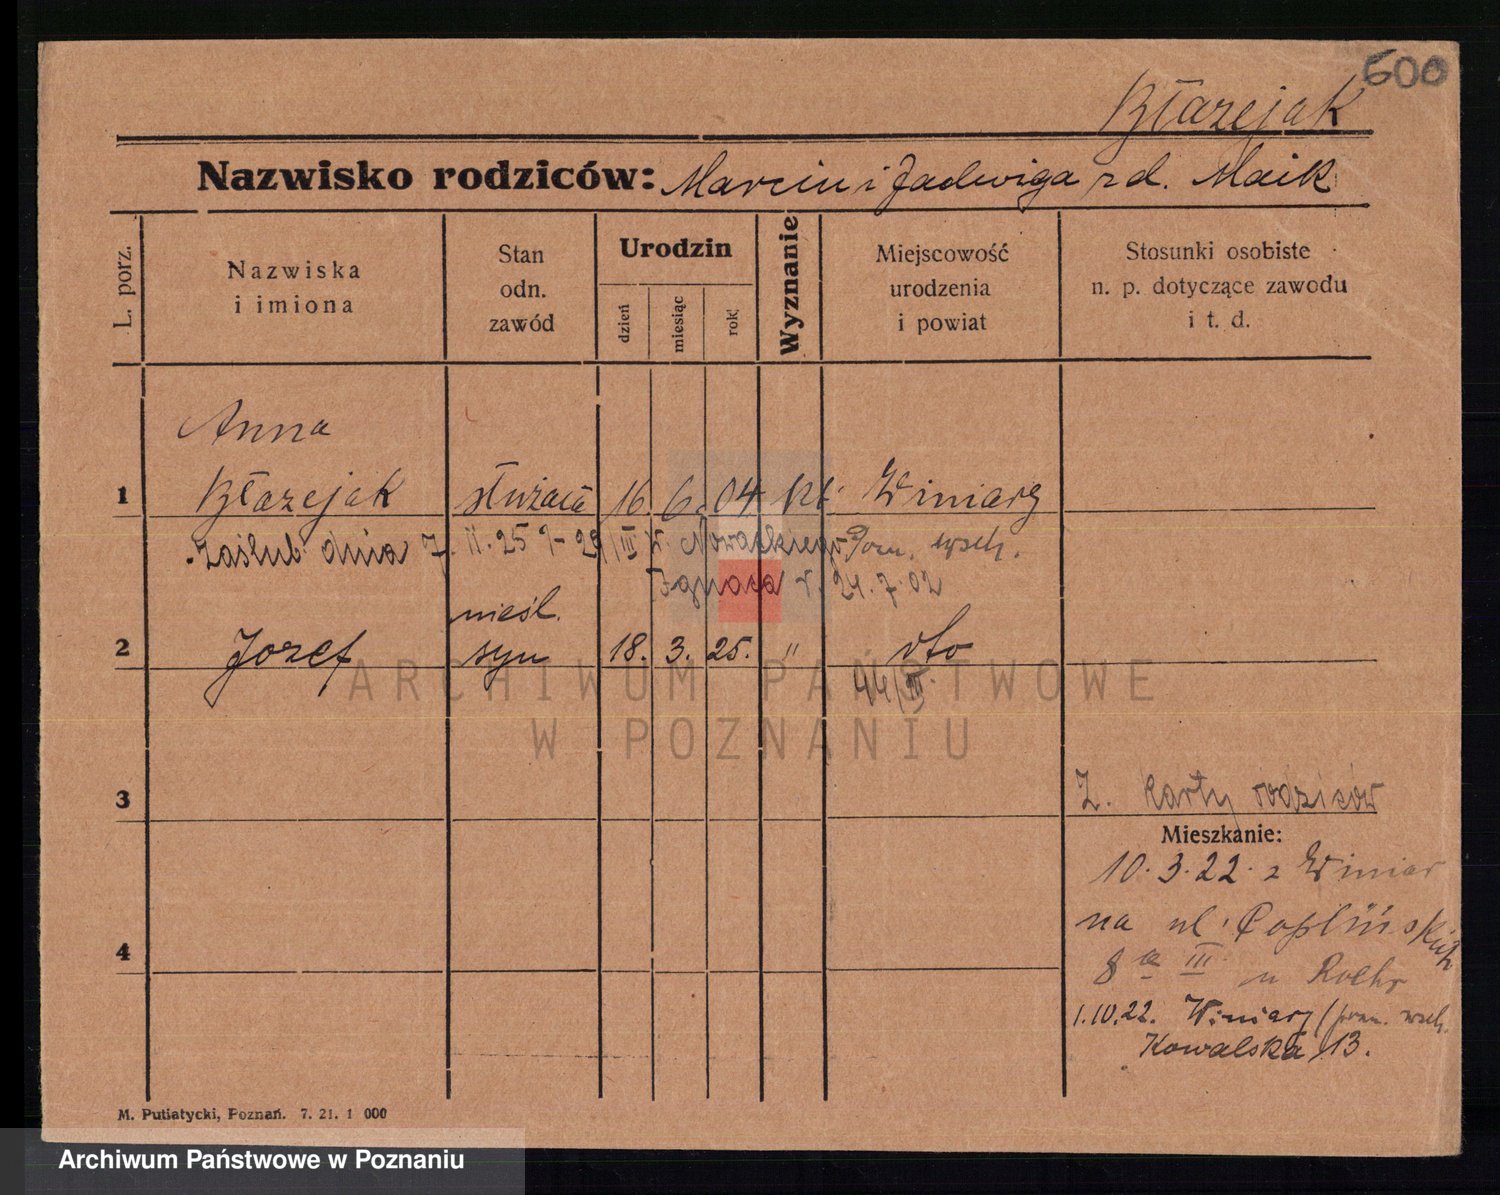 600
Błazejak
Nazwisko rodziców: Marcin i Jadwiga rd. Maik
L. porz.
Nazwiska
i imiona
Stan
odn.
zawód
Urodzin
dzień
miesiąc
rok
Wyznanie
Miejscowość
urodzenia
i powiat
Stosunki osobiste
n. p. dotyczące zawodu
i t. d.
Anna
1 Błazejak służąca 16. 6. 04 kt. Winiary
Zaślub. dnia 7. 11. 25 Nowackiego Pozn. wsch.
Ignaca r. 24.7.02
nieśl.
2 Jozef syn 18. 3. 25. " dto
44/III
ARCHIWUM PAŃSTWOWE
W POZNANIU
3
Z. karty rodziców
Mieszkanie:
10.3.22. z Winiar
na ul.
4
8 a III u Roehr
1.10.22. Winiary (pozn. wsch.
Kowalska 13.
M. Putiatycki, Poznań. 7. 21. 1 000
Archiwum Państwowe w Poznaniu